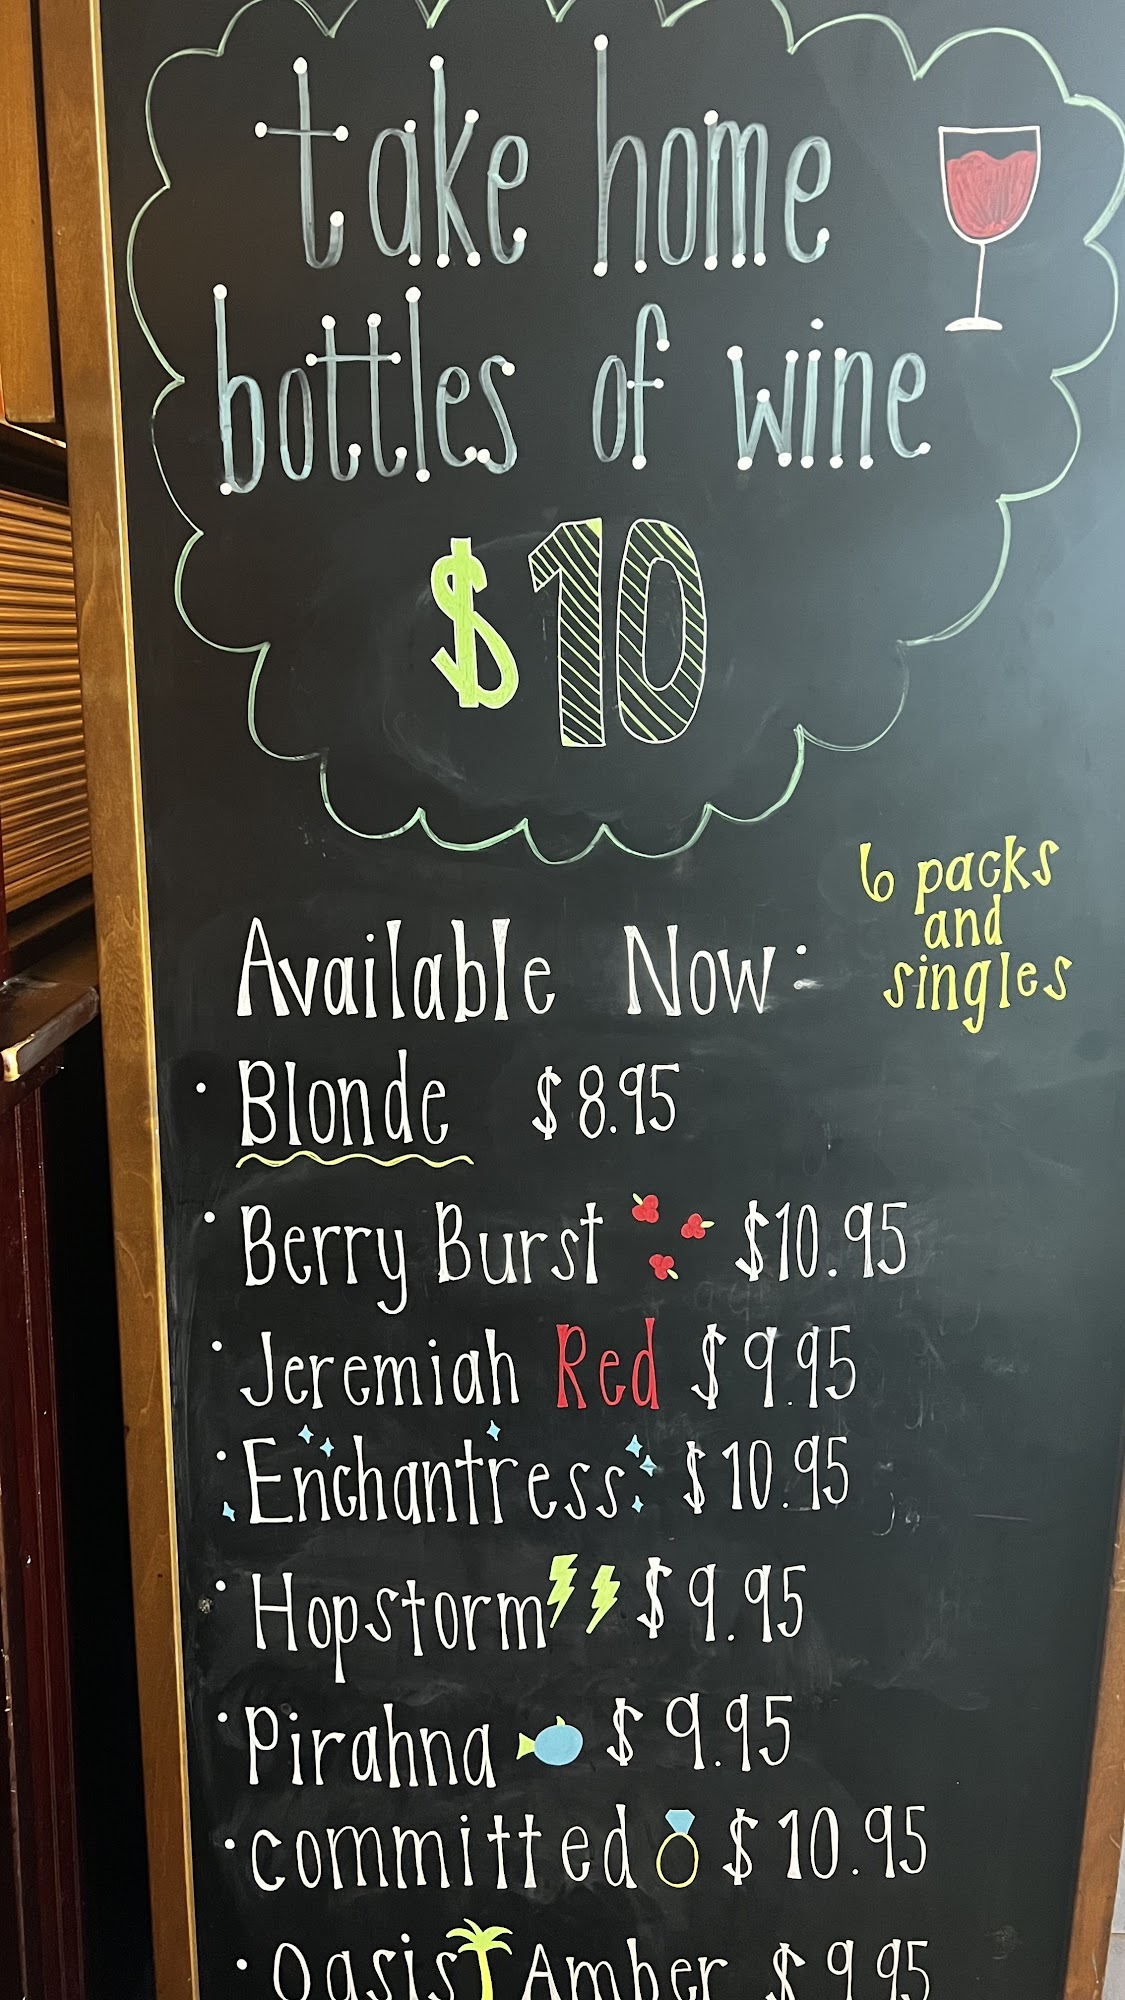 take home
bottles of wine
$10
6 packs
and
singles
Available Now:
• Blonde $8.95
• Berry Burst $10.95
• Jeremiah Red $9.95
• Enchantress $10.95
• Hopstorm $9.95
• Pirahna $9.95
• committed $10.95
• Oasis Amber $9.95